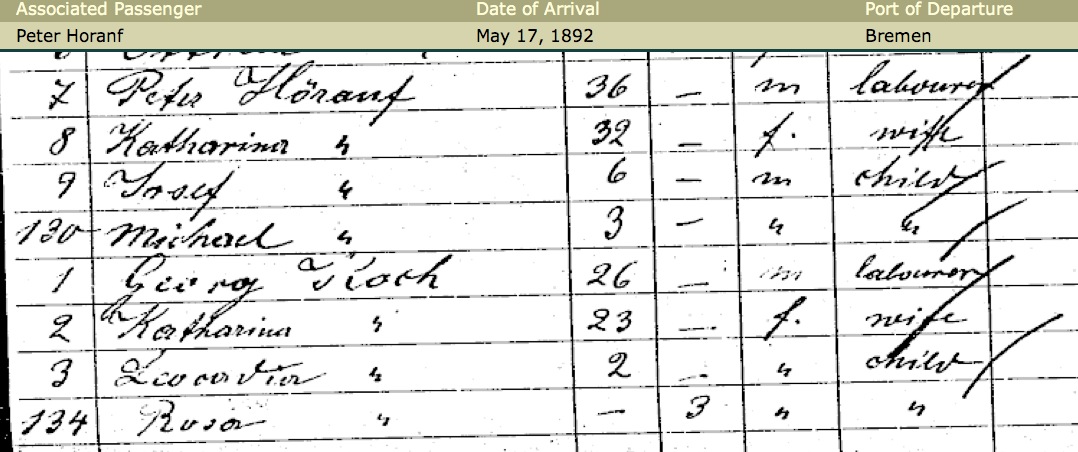 Associated Passenger Date of Arrival Port of Departure
Peter Horanf May 17, 1892 Bremen
7 Peter Hörauf 36 — m labourer
8 Katharina " 32 — f. wife
9 Josef " 6 — m child
130 Michael " 3 — " "
1 Georg Koch 26 — m labourer
2 Katharina " 23 — f. wife
3 " 2 — " child
134 Rosa " — 3 " "